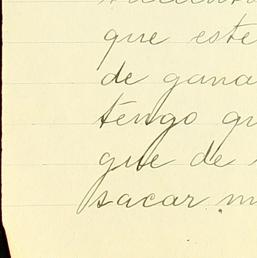 que este
de gana
tengo qu
que de
sacar m